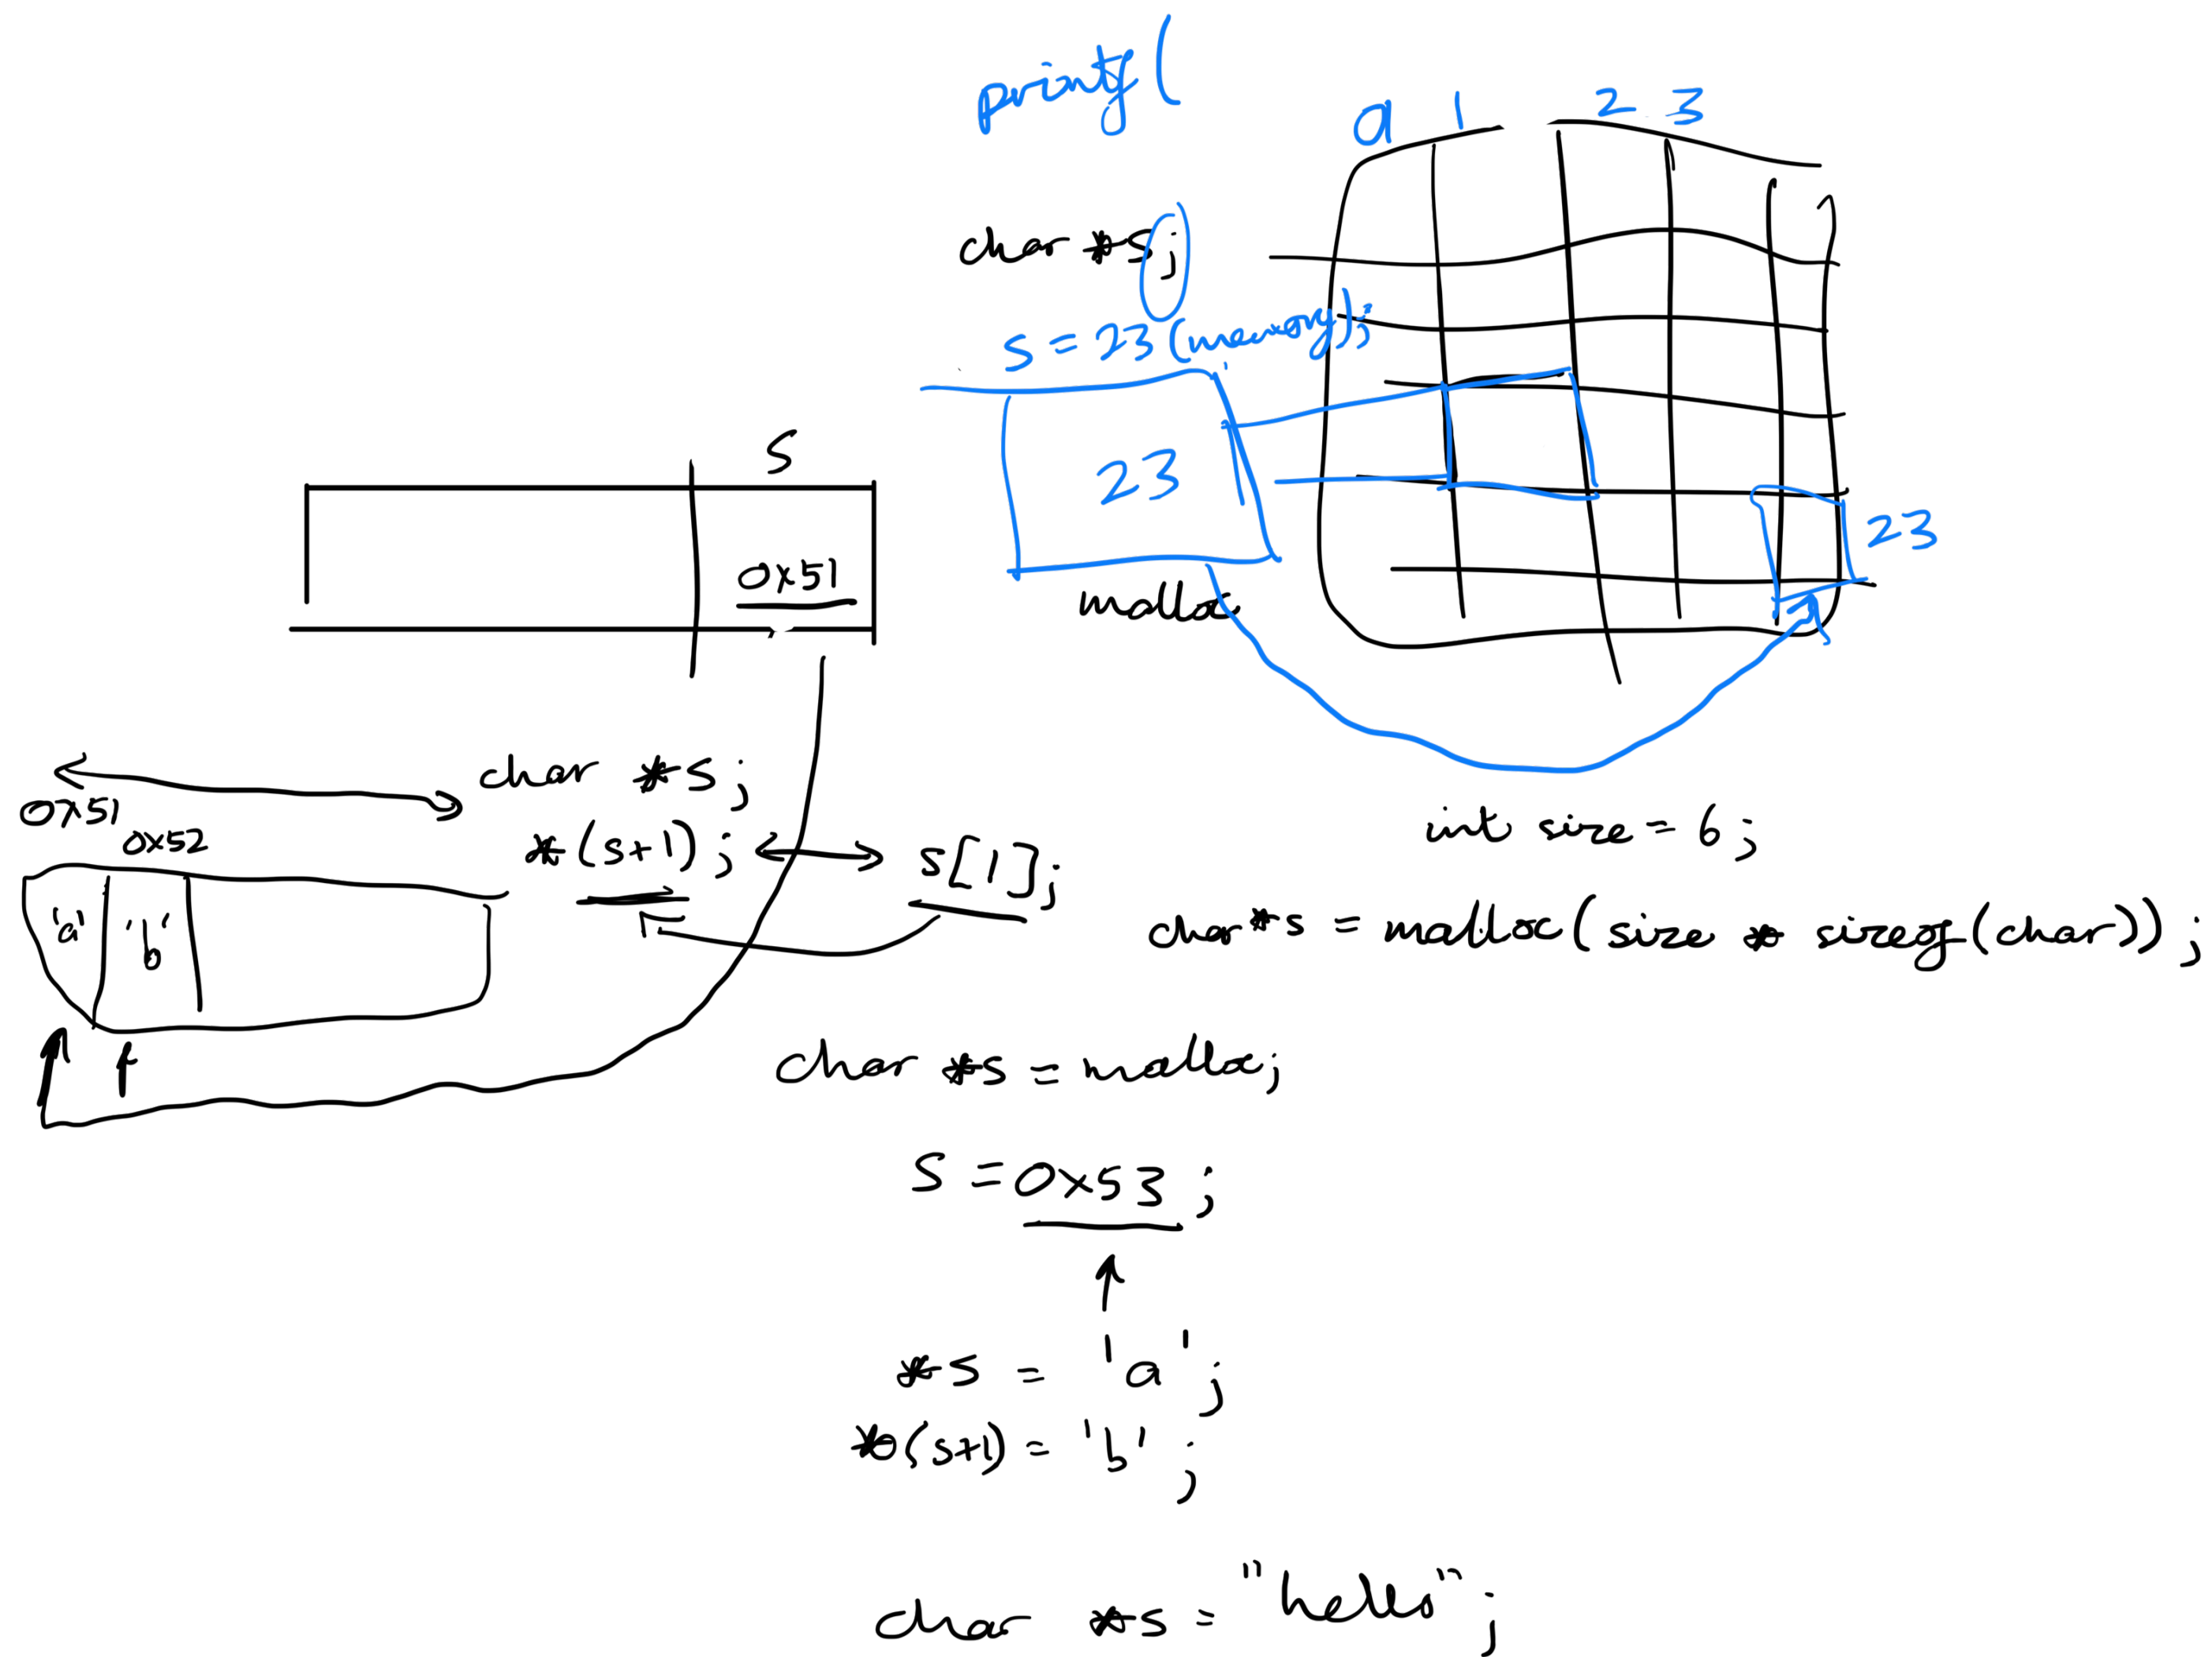 printf (
0 1 2 3
char *s;
s = 23 (memory);
23
23
malloc
s
0x51
char *s;
0x51
0x52
*(s+1); s[1];
'a' 'b'
int size = 6;
char*s = malloc(size * sizeof(char));
char *s = malloc;
s = 0x53;
*s = 'a';
*(s+1) = 'b';
char *s = "hello";